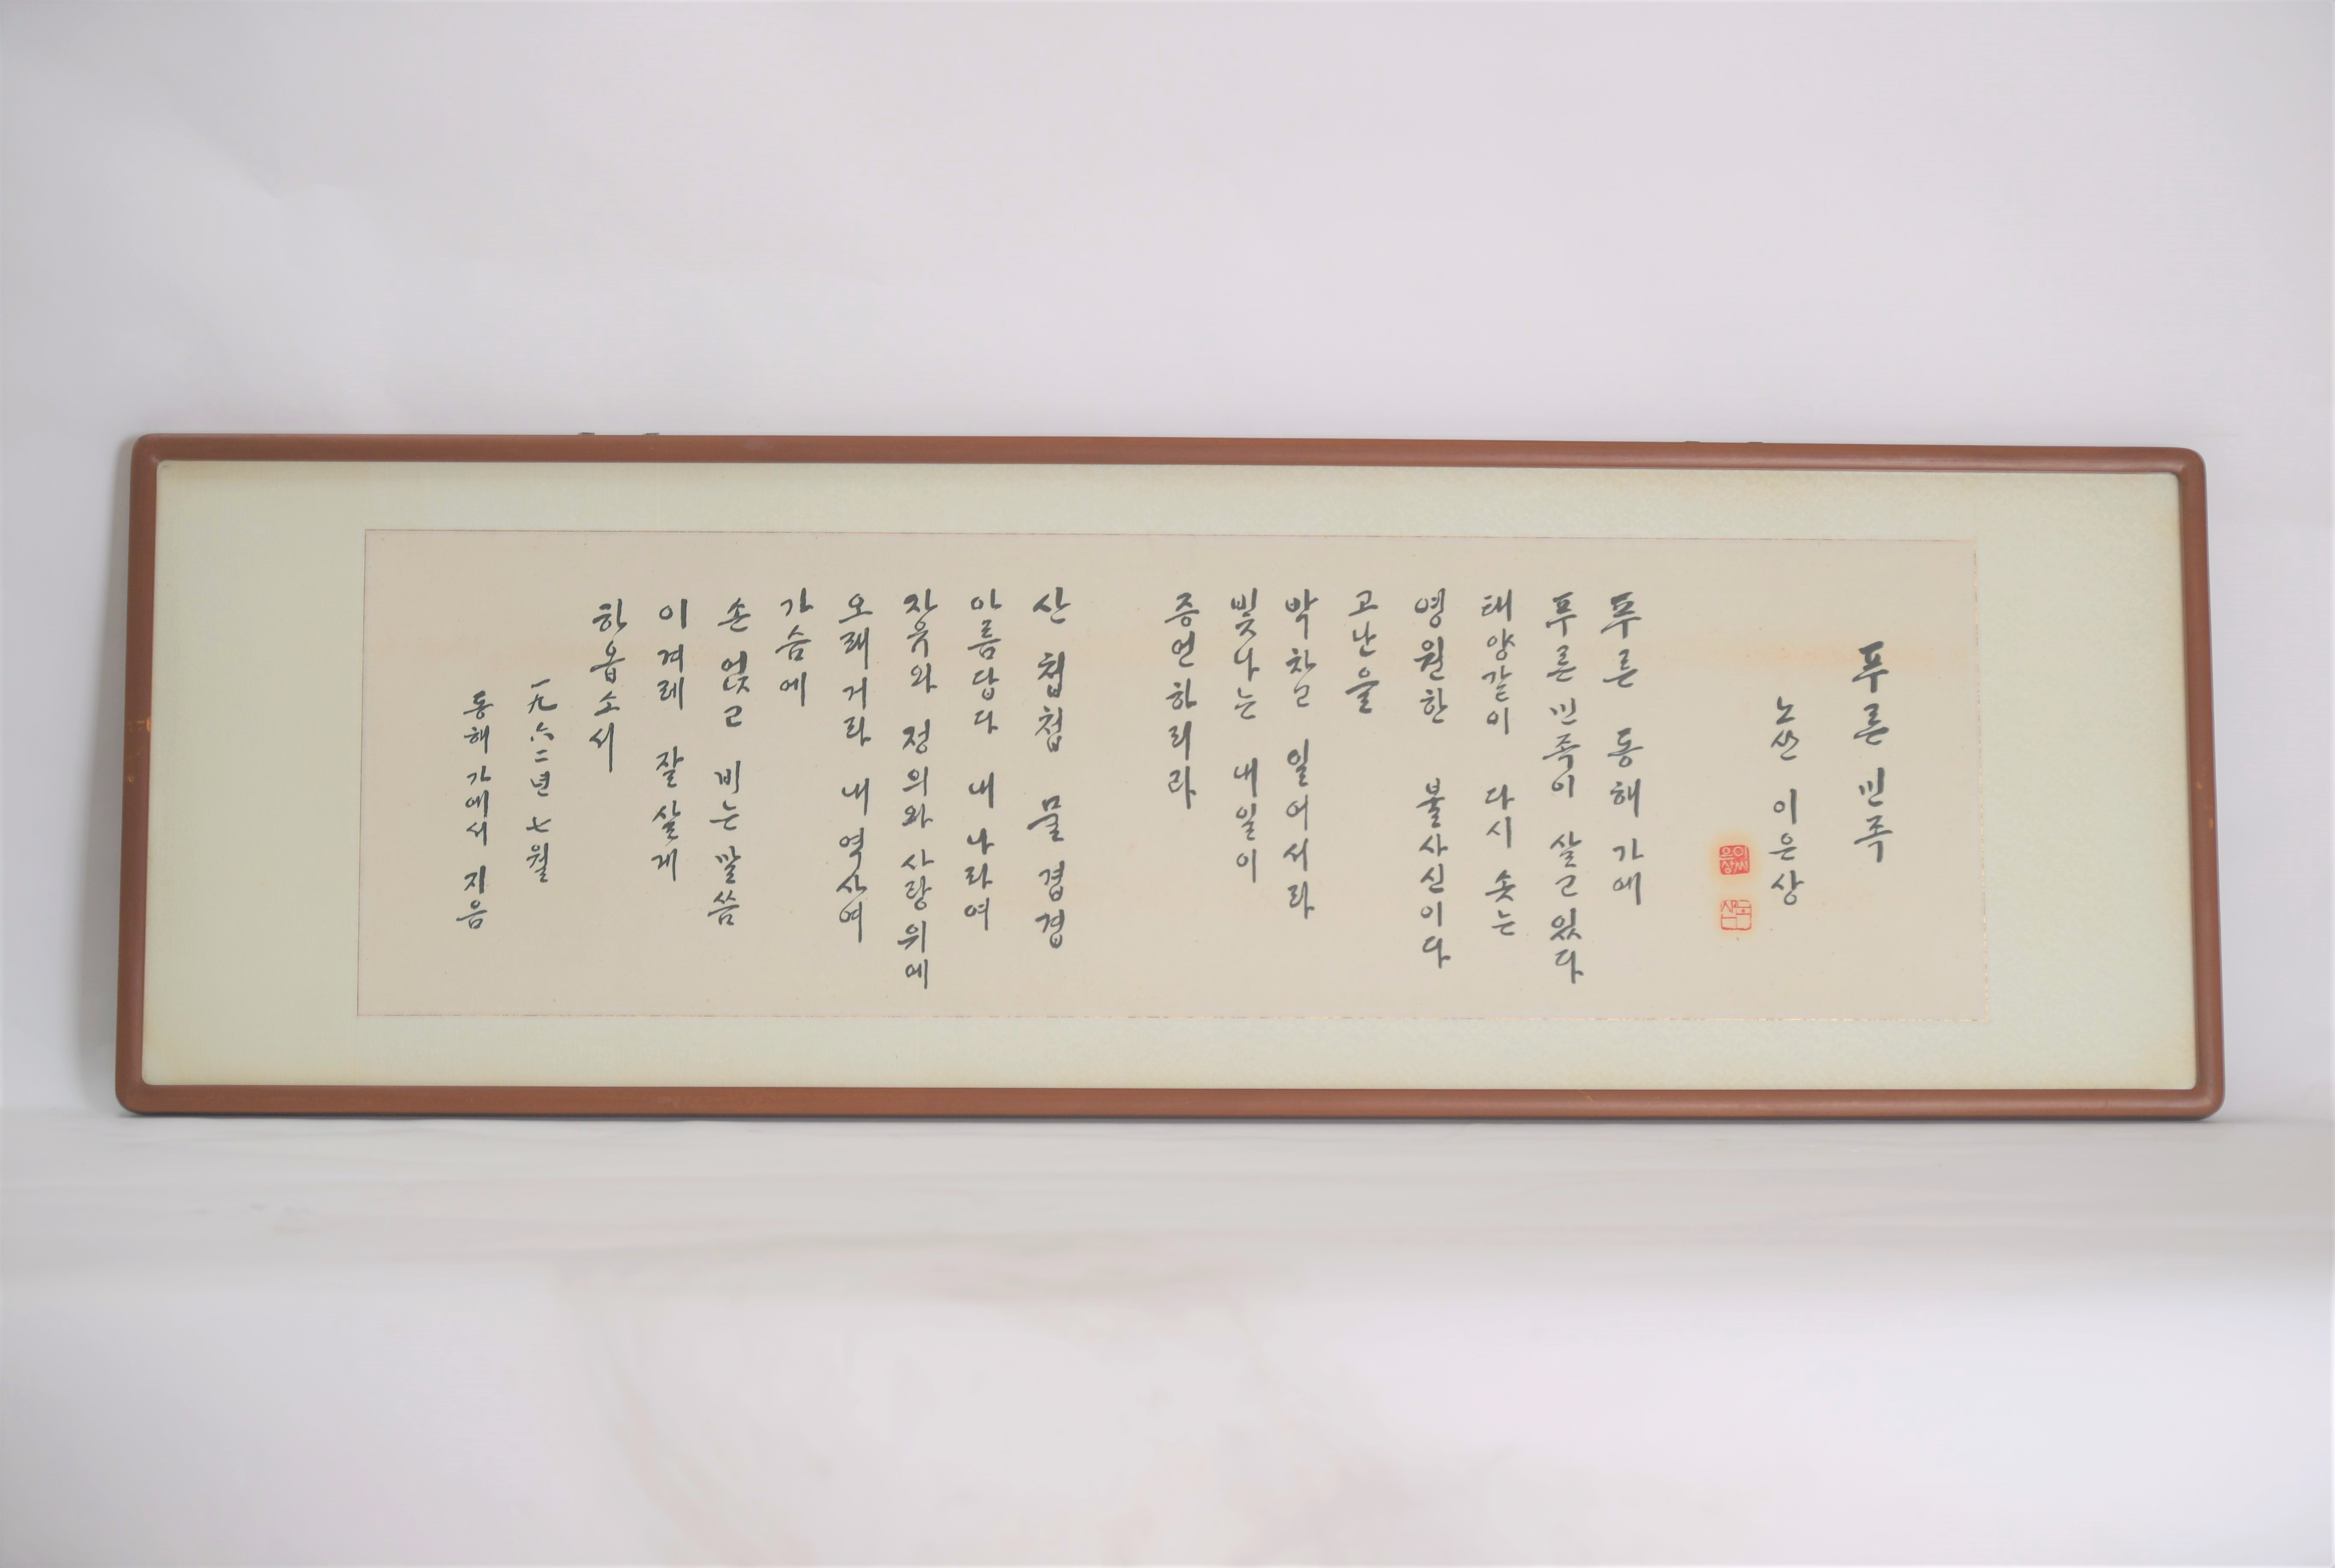 푸른 민족
노산 이은상
이씨은상
노산
푸른 동해 가에
푸른 민족이 살고 있다
태양같이 다시 솟는
영원한 불사신이다
고난을
박차고 일어서라
빛나는 내일이
증언하리라
산 첩첩 물 겹겹
아름답다 내 나라여
자유와 정의와 사랑 위에
오래거라 내 역사여
가슴에
손 얹고 비는 말씀
이 겨레 잘 살게
하옵소서
一九六二년 七월
동해 가에서 지음